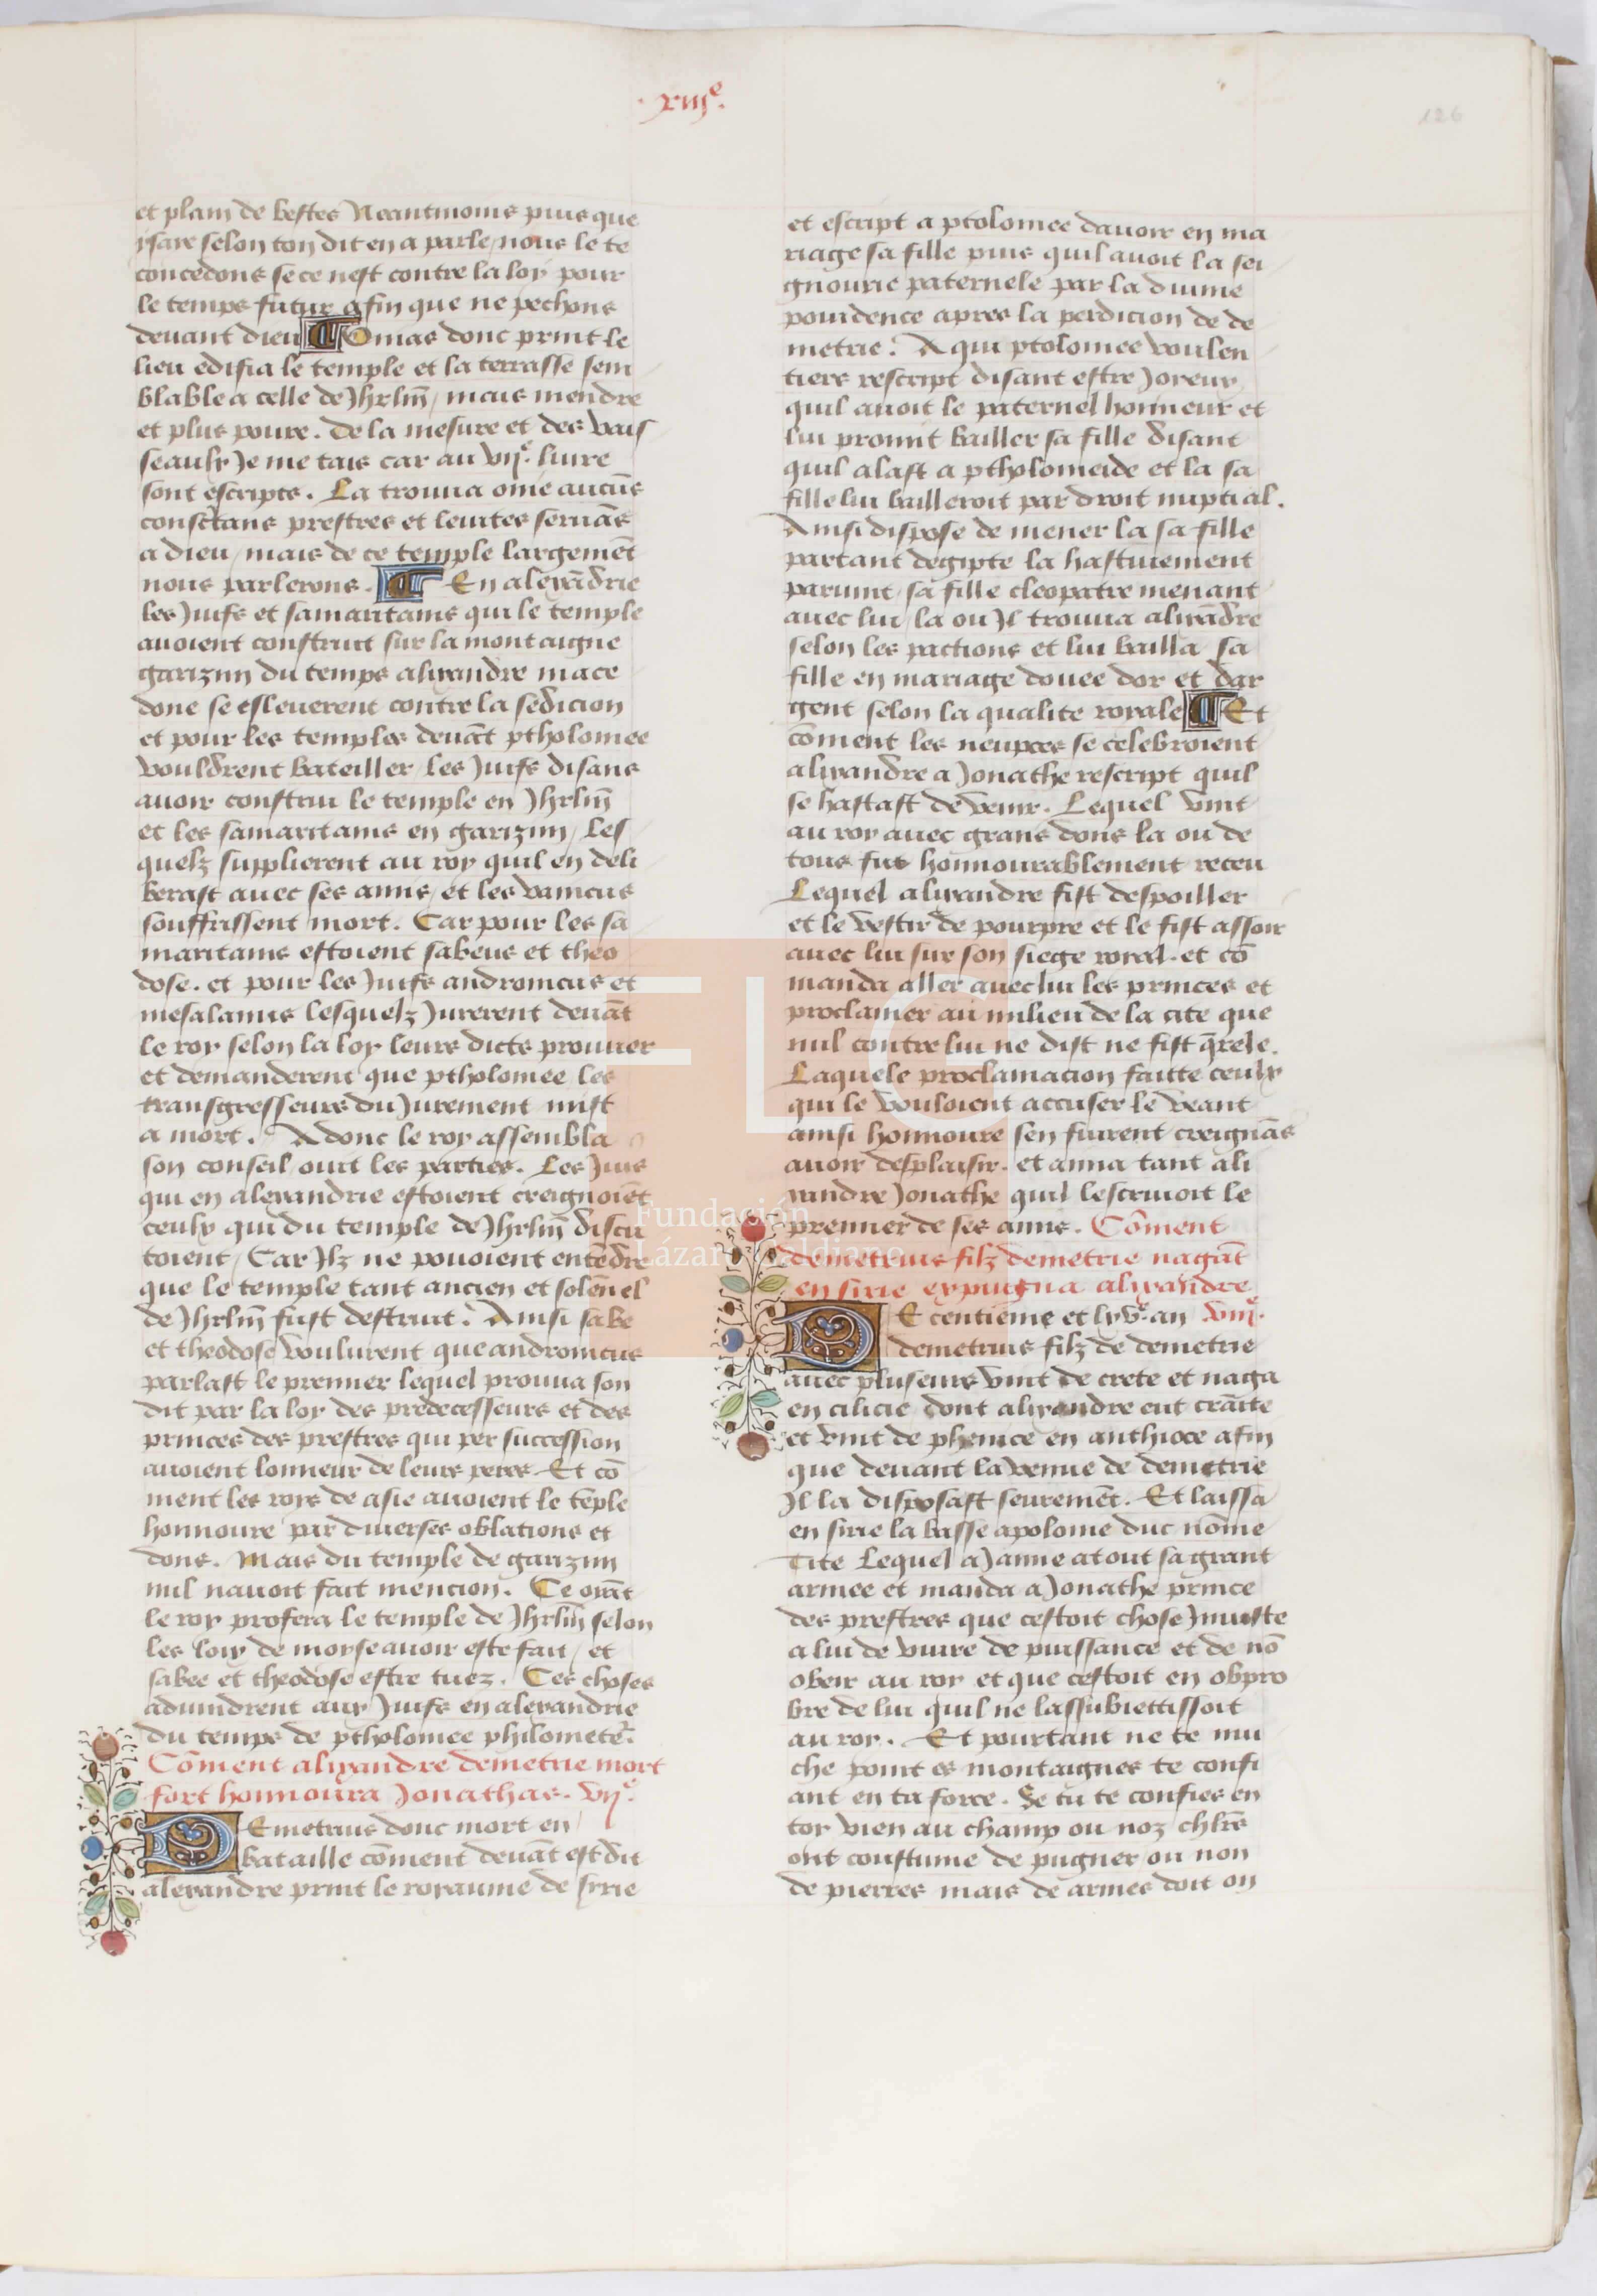 xiiiᵉ.
126
et plain de bestes Neantmoins puis que
ysaie selon ton dit en a parle, nous le te
concedons se ce nest contre la loy pour
le temps futur afin que ne pechons
deuant dieu ¶ Omas donc print le
lieu edifia le temple et la terrasse sem
blable a celle de Jhrlm̄, mais mendre
et plus poure. De la mesure et des vais
seaulx Je me tais car au vijᵉ. liure
sont escripts. La trouua onie aucūs
consctans prestres et leuites seruās
a dieu, mais de ce temple largemēt
nous parlerons. ¶ En alexādrie
les Juifs et samaritains qui le temple
auoient construit sur la montaigne
garizim du temps alixandre mace
done se esleuerent contre la sedicion
et pour les temples deuāt ptholomee
vouldrent batailler, les Juifs disans
auoir construi le temple en Jhrlm̄
et les samaritains en garizim, Les
quelz supplierent au roy quil en deli
berast auec ses amis, et les vaincus
souffrissent mort. Car pour les sa
maritains estoient sabeus et theo
dose. et pour les Juifs andronicus et
mesalamus lesquelz Jurerent deuāt
le roy selon la loy leurs dicts prouuer
et demanderent que ptholomee les
transgresseurs du Jurement mist
a mort. Adonc le roy assembla
son conseil ouit les parties. Les Juis
qui en alexandrie estoient creignoiēt
ceulx qui du temple de Jhrlm̄ discu
toient, Car Jlz ne pouoient entēdre
que le temple tant ancien et solēnel
de Jhrlm̄ fust destruit. Ainsi sabe
et theodose voulurent que andronicus
parlast le premier lequel prouua son
dit par la loy des predecesseurs et des
princes des prestres qui per succession
auoient lonneur de leurs peres. Et cō
ment les roys de asie auoient le tēple
honnoure par diuerses oblations et
dons. Mais du temple de garizim
nul nauoit fait mencion. Ce oyāt
le roy profera le temple de Jhrlm̄ selon
les loix de moyse auoir este fait, et
sabee et theodose estre tuez. Ces choses
aduindrent aux Juifs en alexandrie
du temps de ptholomee philometēr.
Cōment alixandre demetrie mort
fort honnoura Jonathas. vijᵉ.
DEmetrius donc mort en
bataille cōment deuāt est dit
alexandre print le royaume de syrie
et escript a ptolomee dauoir en ma
riage sa fille puis quil auoit la sei
gnourie paternele par la diuine
pouidence apres la perdicion de de
metrie. A qui ptolomee voulen
tiers rescript disant estre Joyeux
quil auoit le paternel honneur et
lui promit bailler sa fille disant
quil alast a ptholomeide et la sa
fille lui bailleroit par droit nuptial.
Ainsi dispose de mener la sa fille
partant degipte la hastiuement
paruint, sa fille cleopatre menant
auec lui, la ou Jl trouua alixādre
selon les pactions et lui bailla sa
fille en mariage douee dor et dar
gent selon la qualite royale ¶ Et
cōment les neupces se celebroient
alixandre a Jonathe rescript quil
se hastast de venir. Lequel vint
au roy auec grans dons la ou de
tous fut honnourablement receu
Lequel alixandre fist despoiller
et le vestir de pourpre et le fist assoir
auec lui sur son siege royal. et cō
manda aller auec lui les princes et
proclamer au milieu de la cite que
nul contre lui ne dist ne fist q̄rele.
Laquele proclamacion faitte ceulx
qui le vouloient accuser le veant
ainsi honnoure sen fuirent creignās
auoir desplaisir. et ama tant ali
xandre Jonathe quil lescriuoit le
premier de ses amis. Cōment
demetrius filz demetrie nagāt
en sirie expugna alixandre
DE centieme et lxvᵉ. an viijᵉ.
demetrius filz de demetrie
auec pluseurs vint de crete et naga
en cilicie dont alixandre eut craītte
et vint de phenice en anthioce afin
que deuant la venue de demetrie
Jl la disposast seuremēt. Et laissa
en sirie la basse apolome duc nōme
Tite Lequel a Jamne atout sa grant
armee et manda a Jonathe prince
des prestres que cestoit chose Jniuste
a lui de viure de puissance et de nō
obeir au roy et que cestoit en obpro
bre de lui quil ne lassubiettissoit
au roy. Et pourtant ne te mu
che point es montaignes te confi
ant en ta force. Se tu te confies en
toy vien au champ ou noz chl̄rs
ont coustume de pugner ou non
de pierres mais de armes doit on
FLG
Fundación
Lázaro Galdiano